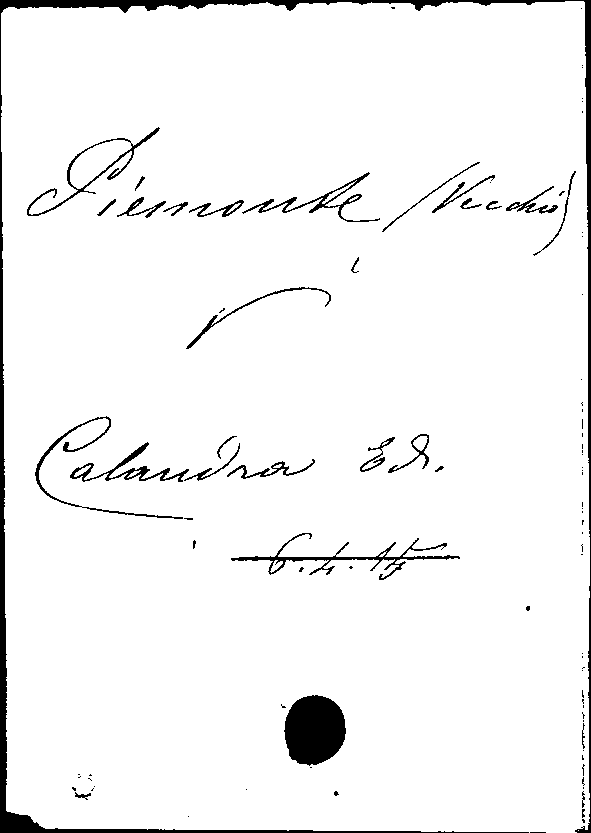 Piemonte (Vecchio)
v
Calandra Ed.
6.4.15